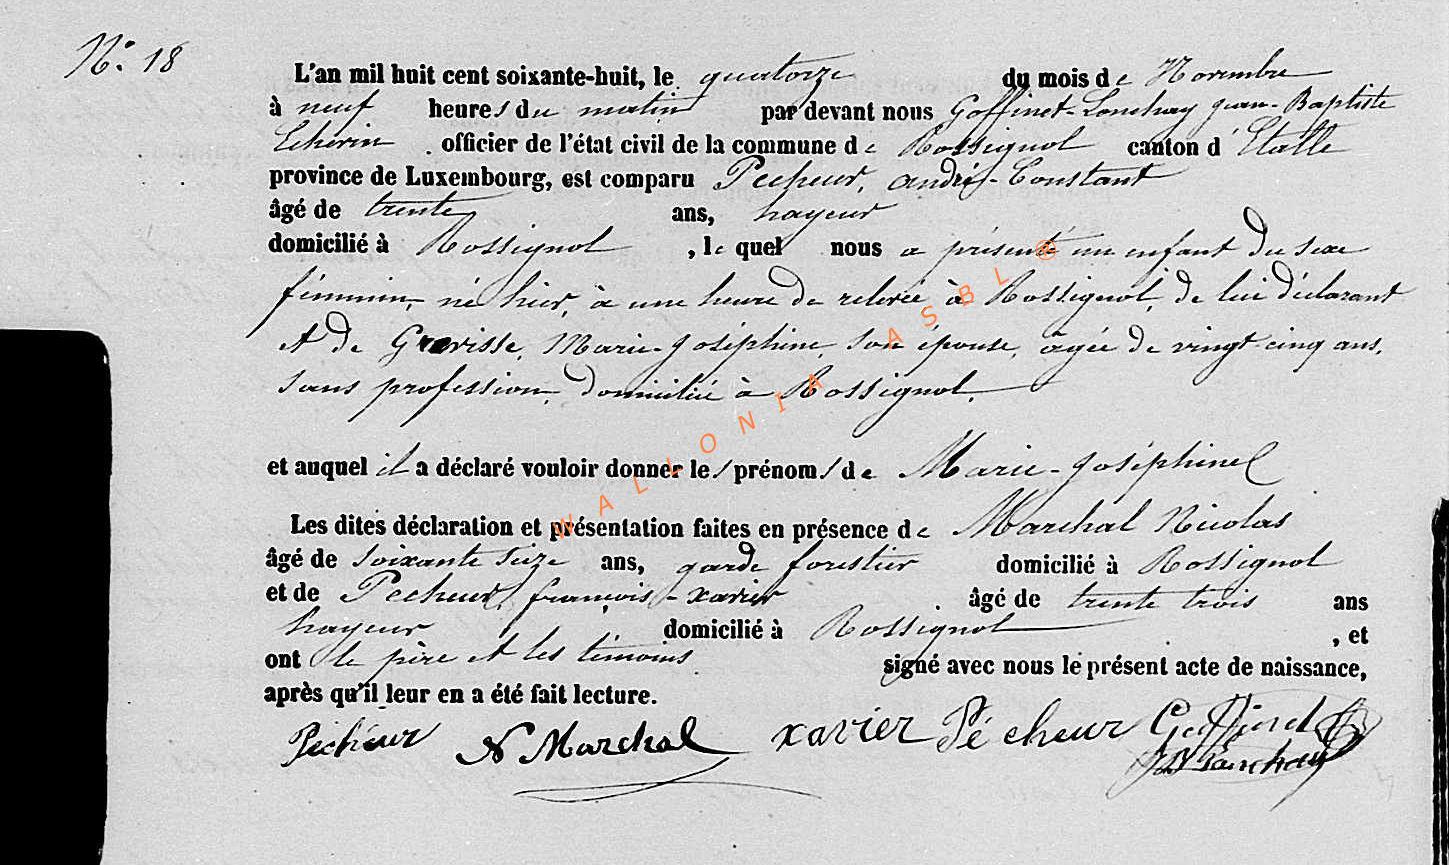 N° 18
L'an mil huit cent soixante-huit, le quatorze du mois de Novembre
à neuf heures du matin par devant nous Goffinet-Lonchay Jean-Baptiste
officier de l'état civil de la commune de Rossignol canton d'Etalle
province de Luxembourg, est comparu Pecheur, andré-Constant
âgé de trente ans, hayeur
domicilié à Rossignol, le quel nous a présenté un enfant du sexe
féminin, né hier, à une heure de relevée à Rossignol, de lui déclarant
et de Grevisse, Marie-Joséphine, son épouse, agée de vingt cinq ans,
sans profession, domiciliée à Rossignol,
et auquel il a déclaré vouloir donner les prénoms de Marie-Joséphine
Les dites déclaration et présentation faites en présence de Marchal Nicolas
âgé de soixante seize ans, garde forestier domicilié à Rossignol
et de Pecheur, françois-xavier âgé de trente trois ans
hayeur domicilié à Rossignol, et
ont le père et les témoins signé avec nous le présent acte de naissance,
après qu'il leur en a été fait lecture.
Pécheur N Marchal xavier Pécheur Goffinet
JB Lonchay
WALLONIA ASBL ®